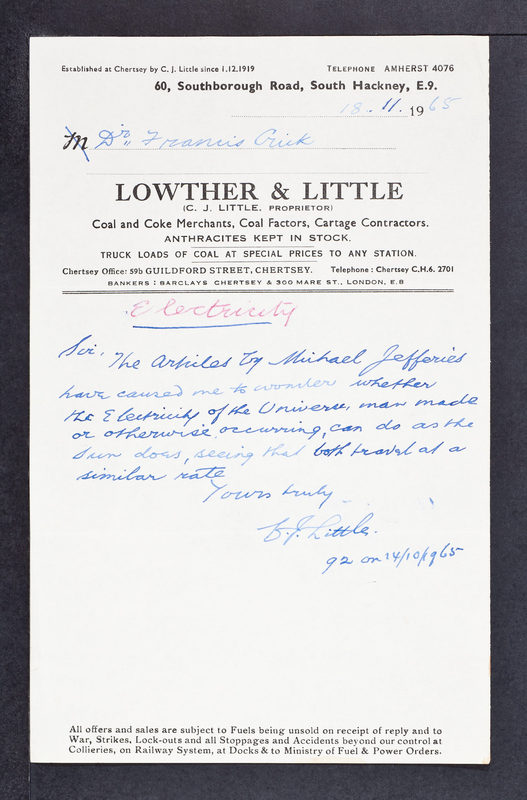 Established at Chertsey by C. J. Little since 1.12.1919
TELEPHONE AMHERST 4076
60, Southborough Road, South Hackney, E.9.
18.11.1965
M Dr,, Francis Crick
LOWTHER & LITTLE
(C. J. LITTLE, PROPRIETOR)
Coal and Coke Merchants, Coal Factors, Cartage Contractors.
ANTHRACITES KEPT IN STOCK.
TRUCK LOADS OF COAL AT SPECIAL PRICES TO ANY STATION.
Chertsey Office: 59b GUILDFORD STREET, CHERTSEY. Telephone: Chertsey C.H.6. 2701
BANKERS: BARCLAYS CHERTSEY & 300 MARE ST., LONDON, E.8
Electricity
Sir, The Articles by Michael Jefferies
have caused me to wonder whether
the Electricity of the Universe, man made
or otherwise occurring, can do as the
Sun does, seeing that both travel at a
similar rate
Yours truly
C.J. Little.
92 on 14/10/1965
All offers and sales are subject to Fuels being unsold on receipt of reply and to
War, Strikes, Lock-outs and all Stoppages and Accidents beyond our control at
Collieries, on Railway System, at Docks & to Ministry of Fuel & Power Orders.